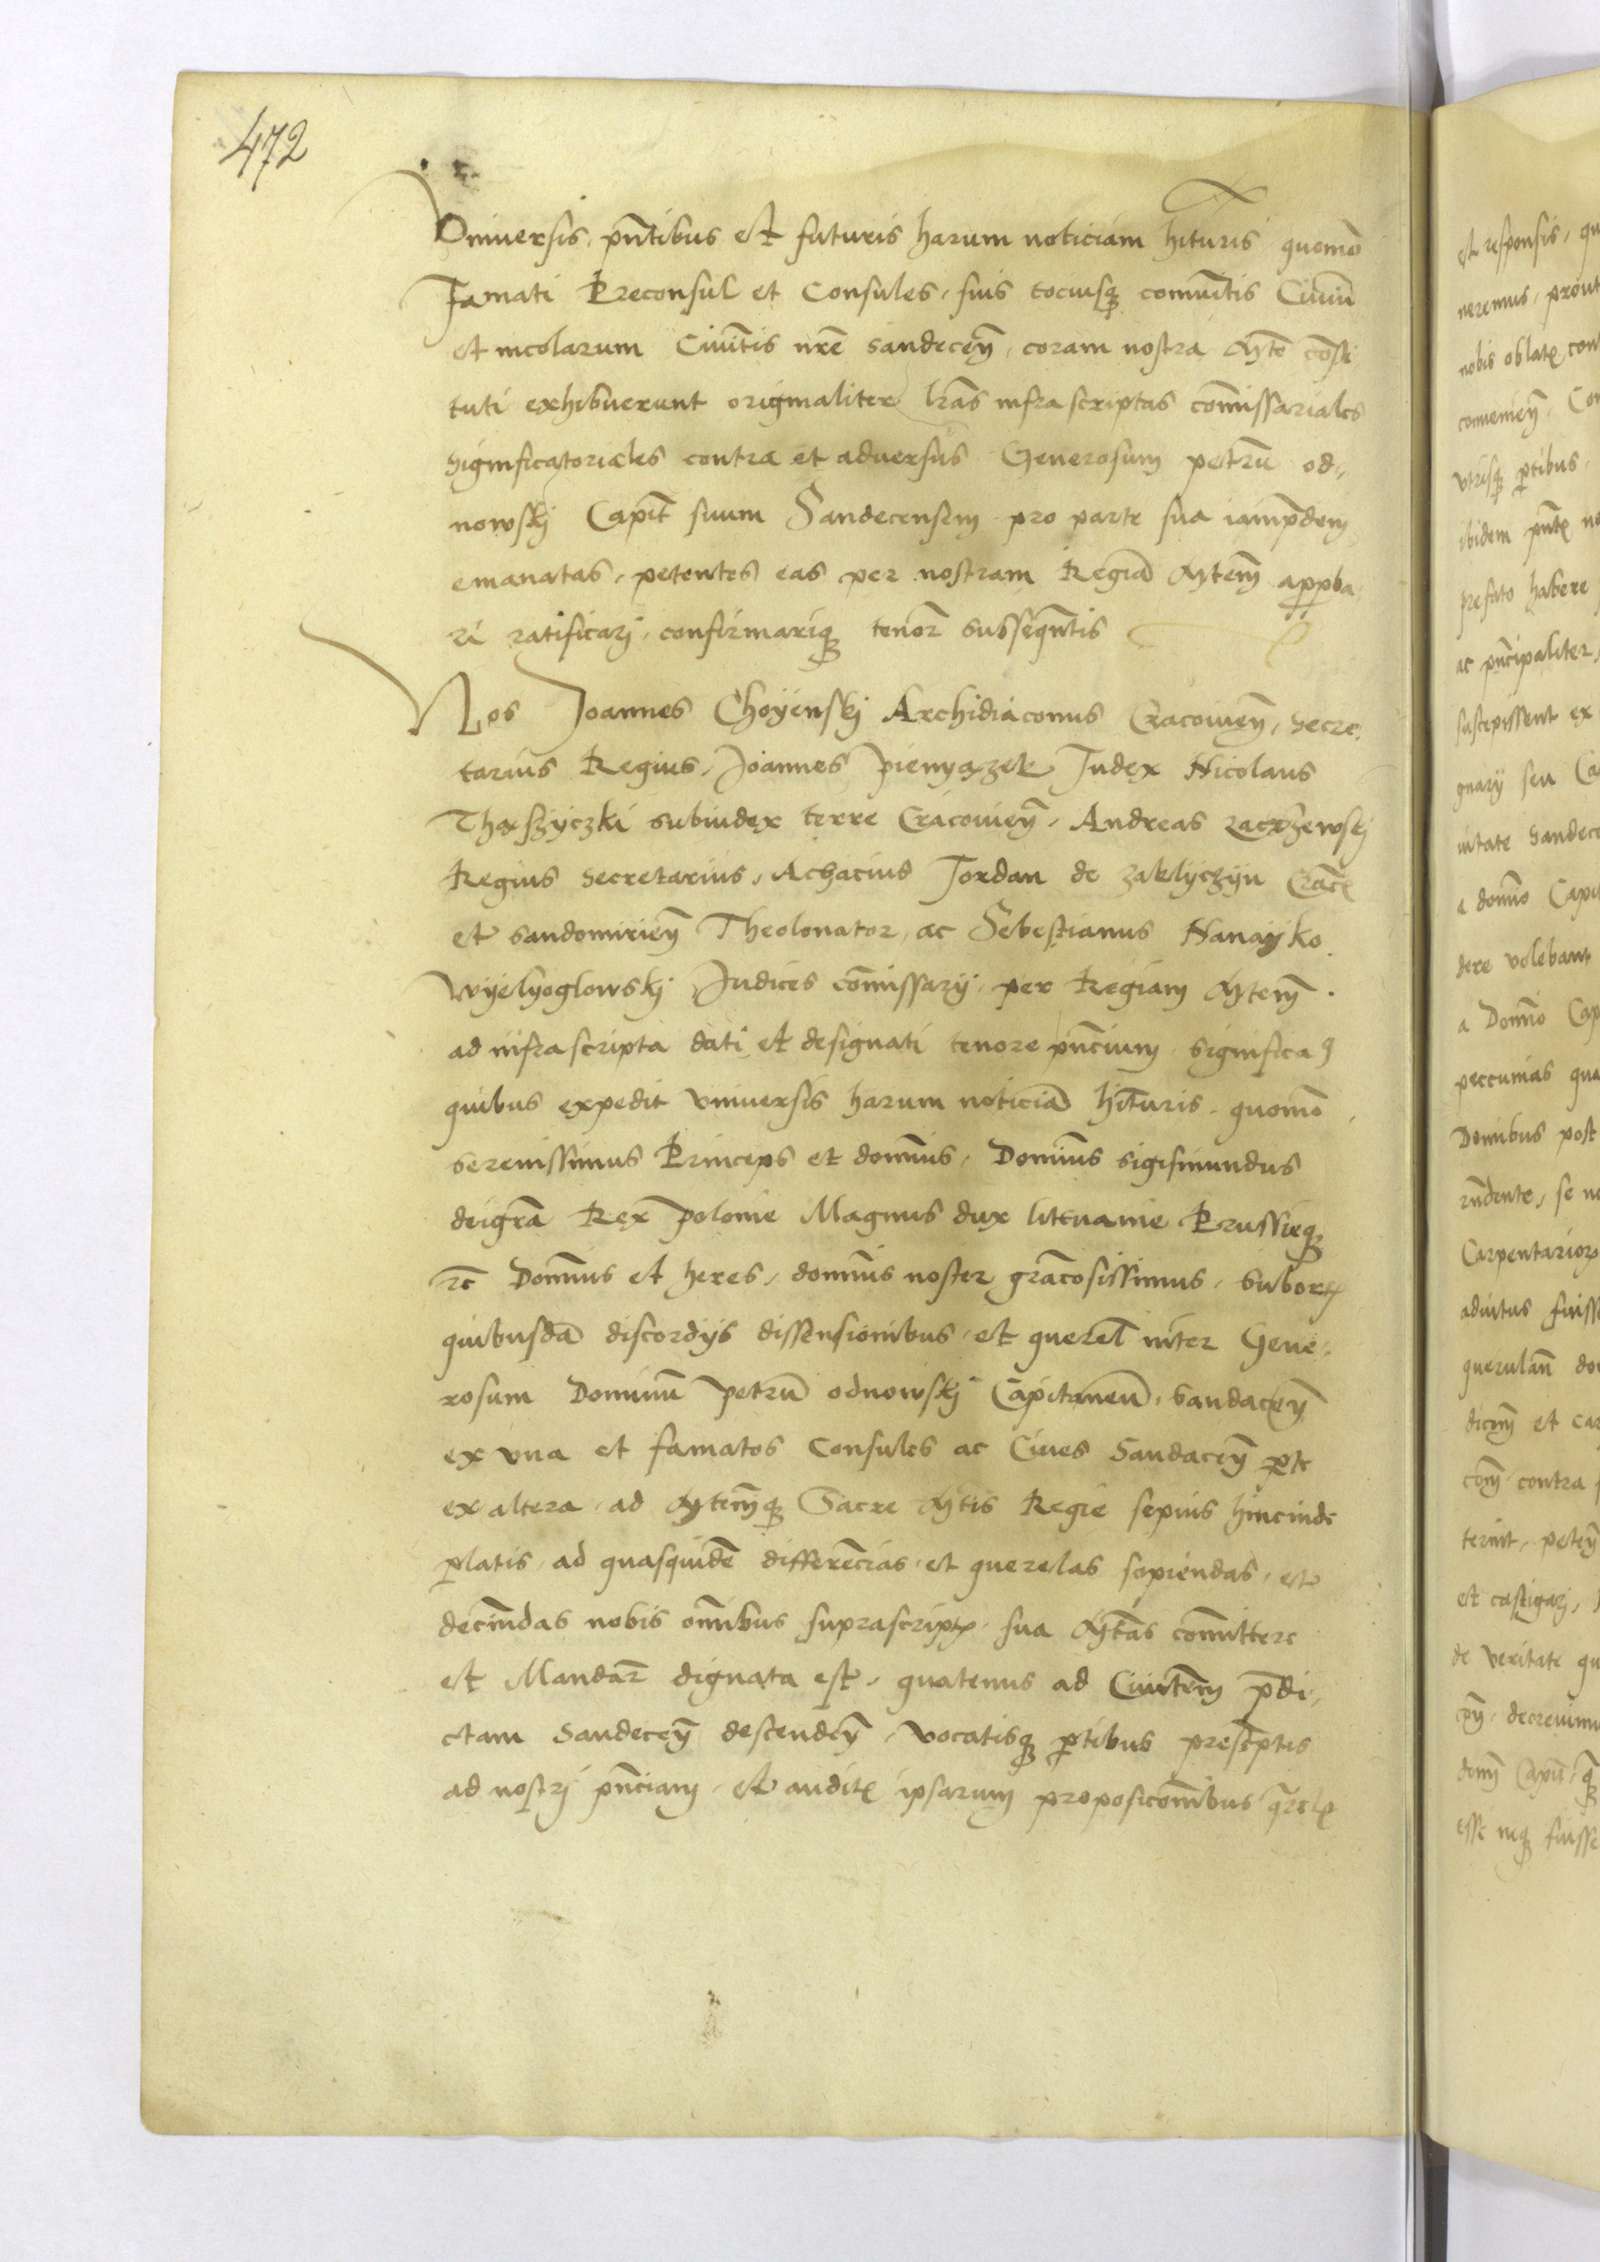 472
Vniuersis, pñtibus et futuris harum noticiam hituris quomō
Famati Preconsul et Consules, suis tociusq comuitis Ciuiū
et incolarum Ciuitis nrē Sandeceñ, coram nostra Mte cōsti
tuti exhibuerunt originaliter lras infrascriptas comissariales
significatoriales contra et adversus Generosum petrū od,
nowskj Capit suum Sandecensem pro parte sua iampdem
emanatas, petentes eas per nostram Regiā Mtem appba
ri ratificarj, confirmariq tenor subseqntis
Nos Joannes Choyenskj Archidiaconus Cracouieñ, Secre
tarius Regius, Joannes Pienyązek Judex Nicolaus
Thaszyczki subiudex terre Cracouieñ, Andreas
Regius Secretarius, Achacius Jordan de zaklyczyn Crac
et Sandomirieñ Theolonator, ac Sebestianus Nanayko
Wyelyoglowskj Judices comissarij, per Regiam Mtem.
ad infrascripta dati et designati tenore pñcium significa9
quibus expedit vniuersis harum noticiā hituris, quomō
serenissimus Princeps et domnus, Domnus sigismundus
deigrā Rex polonie Magnus dux lituanie Prussieq
rc Domnus et heres, domnus noster gracosissimus, subort
quibusdā discordijs dissensionibus, et querel inter Gene,
rosum Dominū petrū odnowskj Capitaneū, sandaceñ
ex vna et famatos Consules ac Ciues Sandaceñ pte
ex altera, ad Mtemq Sacre Mtis Regie sepius hincinde
platis, ad quasquidē differēcias, et querelas sopiendas, et
decindas nobis omibus suprascript, sua Mtas comittere
et Mandar dignata est, quatenus ad Ciuitem pdi,
ctam Sandeceñ descendeñ, vocatisq ptibus prescptis
ad nostrj pñciam, et audit ipsarum proposicōnibus qrel
et responsis, qu
neremus, prout
nobis oblat, con
conuenieñ, Co
vtrisq ptibus,
ibidem pñt no
prefato habere
ac pncipaliter,
suscepissent ex
gnarij seu Ca
uitate Sandec
a domno Capi
dere volebant
a Domno Cap
peccunias qua
Domibus post
rndente, se n
Carpentarior
aduitus fuiss
querulan do
dicm et ca
com contra
terint, peteñ
et castigarj,
de veritate qu
decreuimu
dom Capit, q
esse neq fuisse